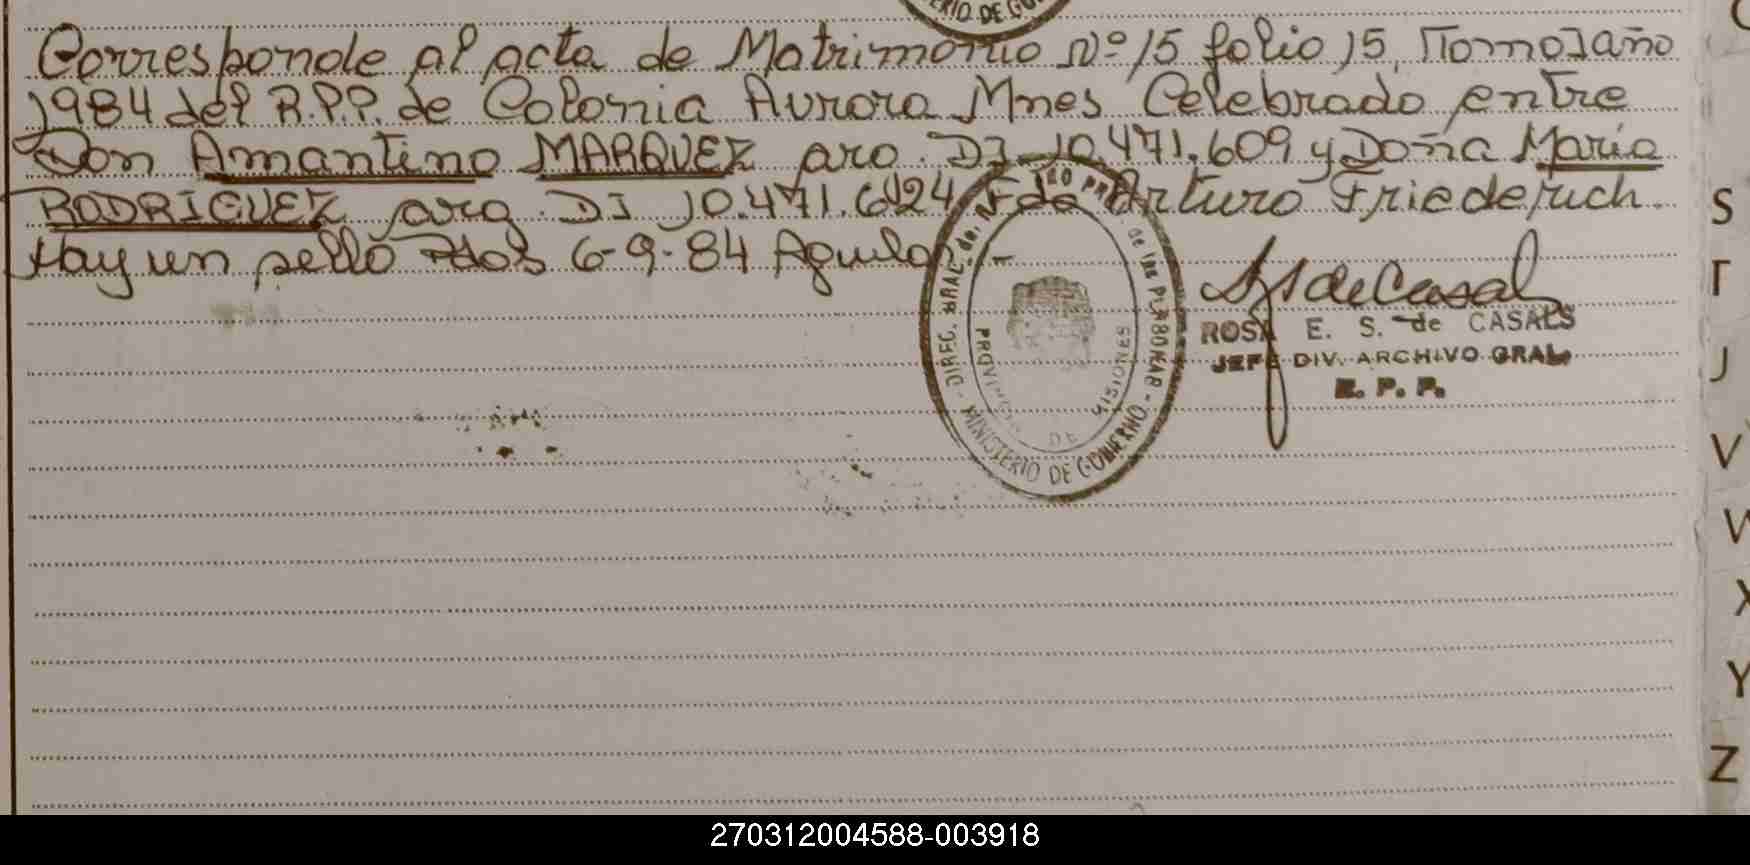 Corresponde al acta de Matrimonio Nº 15 folio 15, Tomo I año
1984 del R.P.P. de Colonia Aurora Mnes Celebrado entre
Don Amantino MARQUEZ arg. DI 10.471.609 y Doña Maria
RODRIGUEZ arg. DI 10.471.624 Fdo Arturo Friederich.
Hay un sello Pdas 6-9-84 Aguilar
MINISTERIO DE GOBIERNO
PROVINCIA DE MISIONES
ROSA E. S. de CASALS
JEFE DIV. ARCHIVO GRAL.
R. P. P.
S
T
J
V
W
X
Y
Z
270312004588-003918